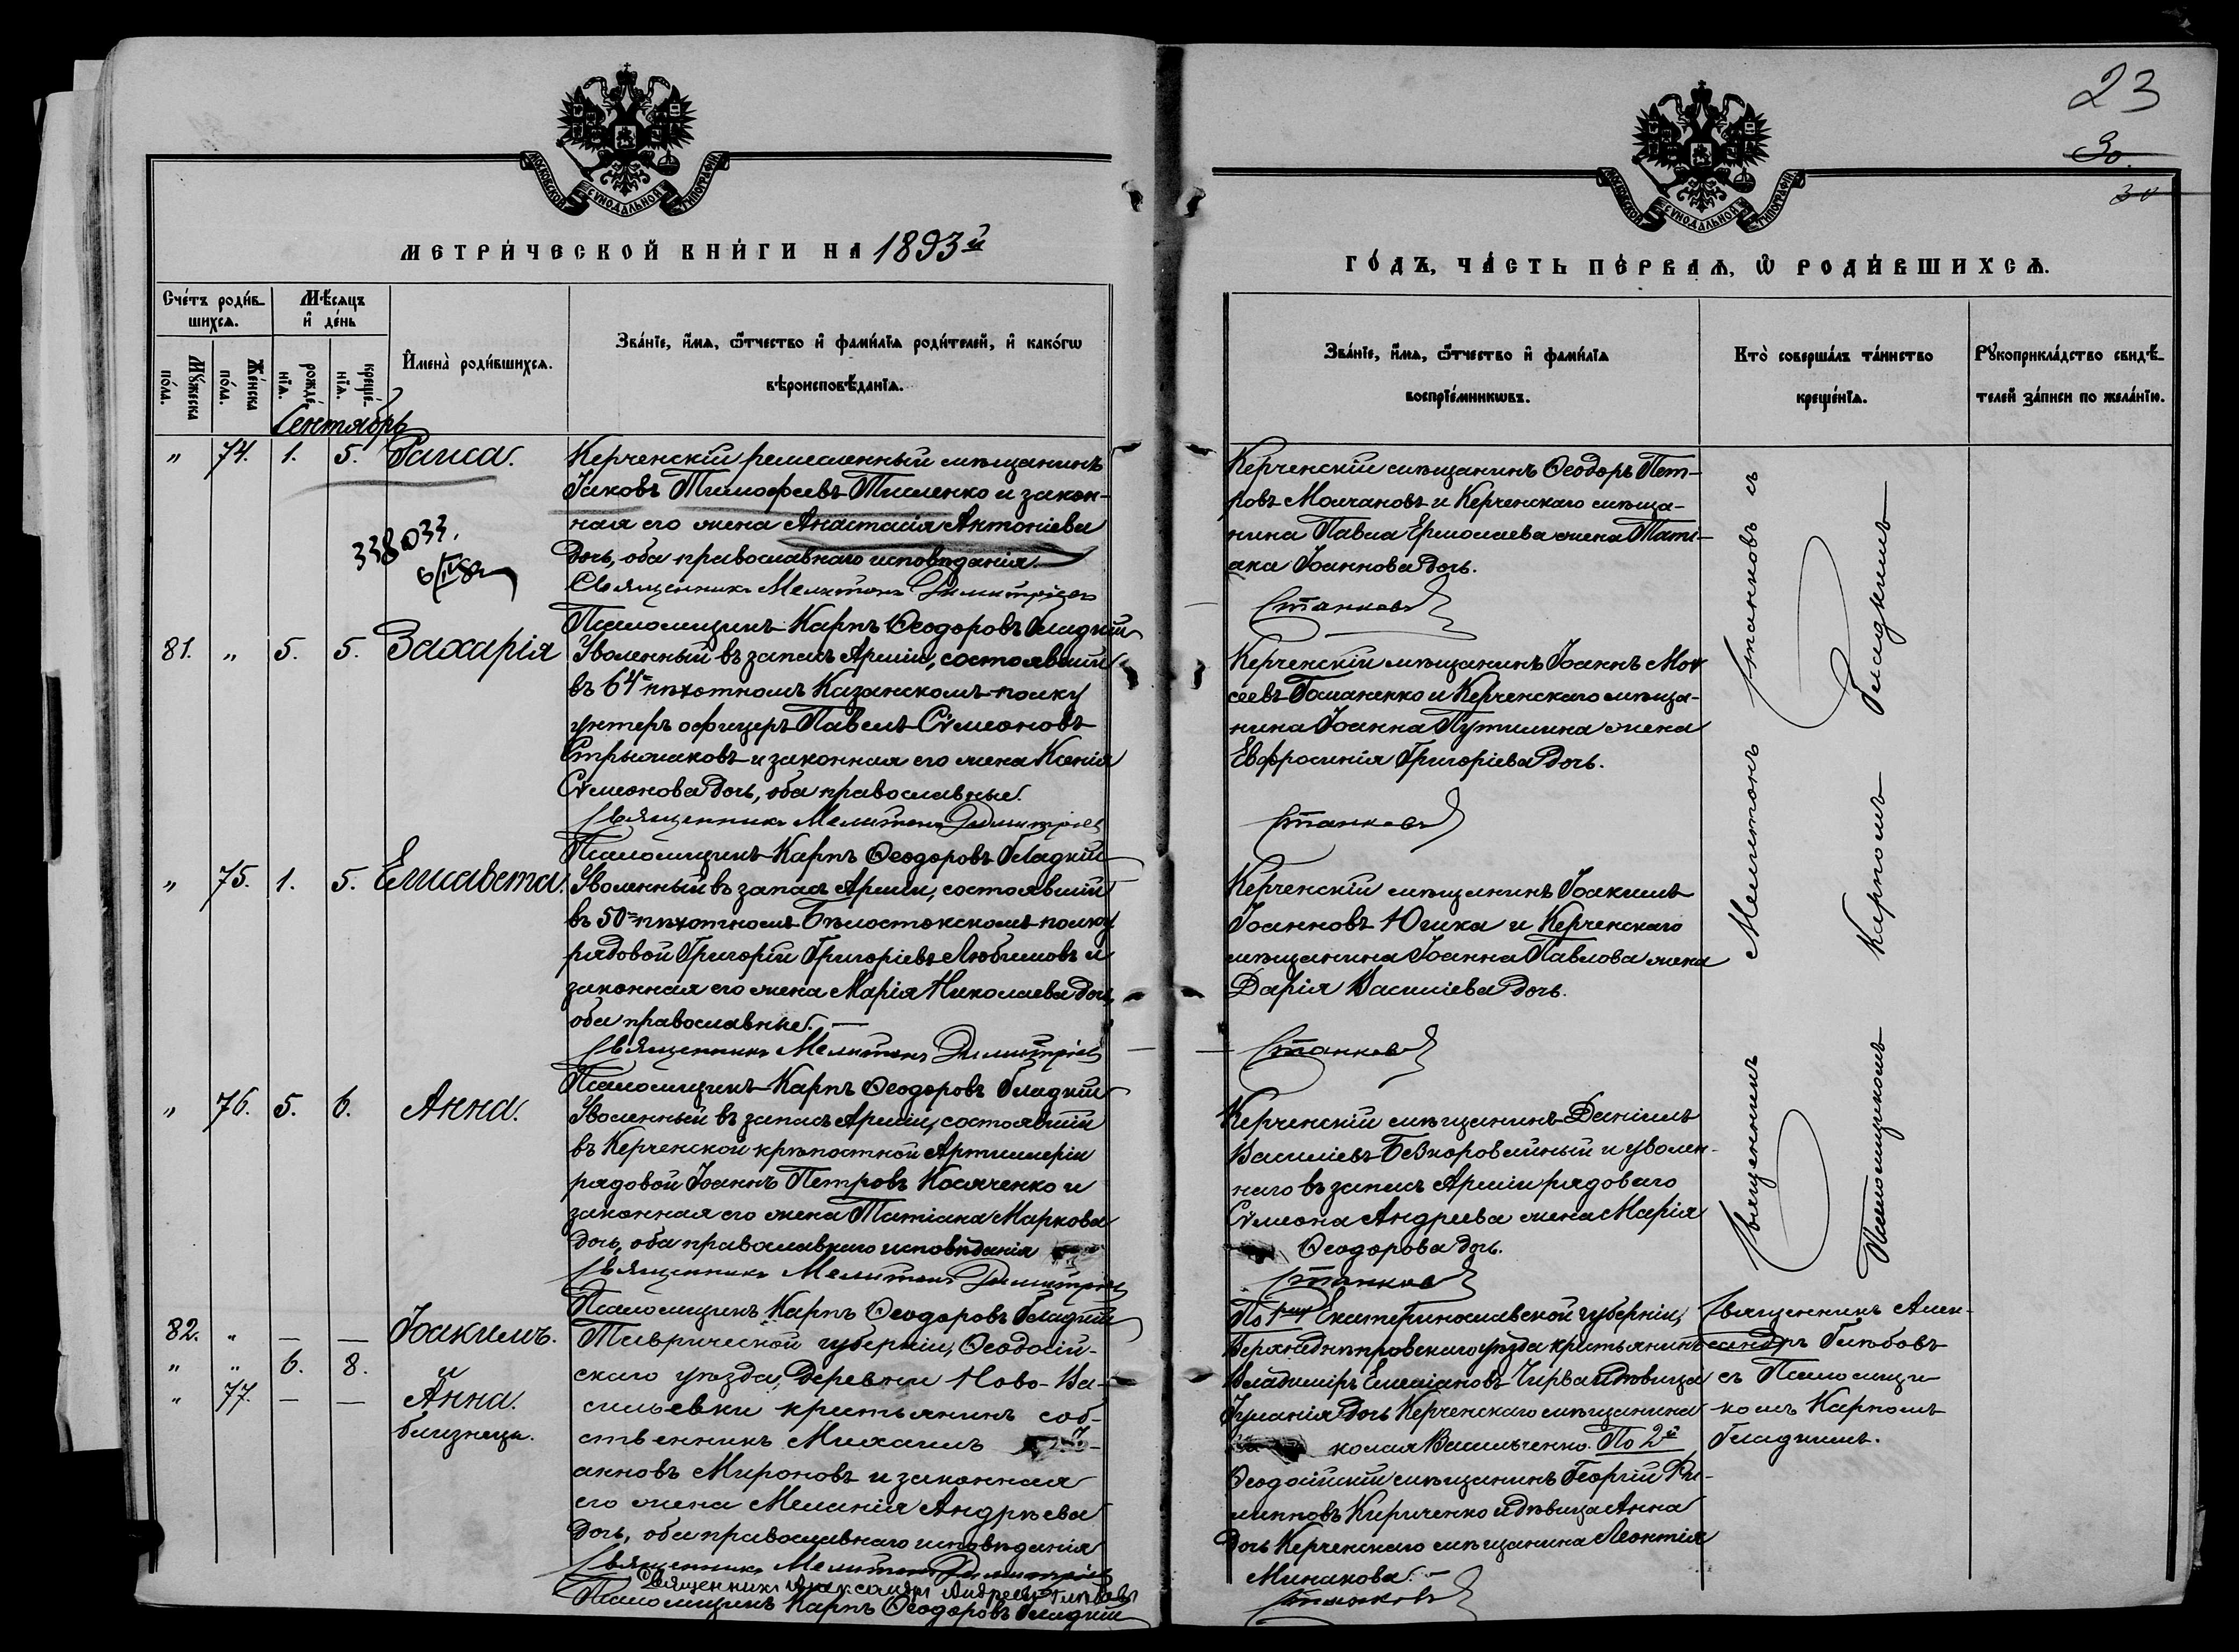 МОСКОВСКОЙ СѴНОДАЛЬНОЙ ТИПОГРАФІИ
МЕТРИ́ЧЕСКОЙ КНИ́ГИ НА 1893й
Сче́тъ роди́в-
шихся.
Мѣ́сяцъ
и҆ де́нь
Му́жеска
по́ла.
Же́нска
по́ла.
рожде́-
нїѧ.
креще́-
нїѧ.
И҆мена̀ роди́вшихся.
Зва́нїе, и҆́мѧ, ѻ҆́тчество и҆ фами́лїѧ роди́телей, и҆ како́гѡ
вѣроисповѣ́данїѧ.
Сентябрь
" 74. 1. 5. Раиса.
Керченскій ремесленный мѣщанинъ
Іаковъ Тимофеевъ Тисленко и закон-
ная его жена Анастасія Антоніева
дочь, оба православнаго исповѣданія.
Священникъ Мелитонъ Димитріевъ
Псаломщикъ Карпъ Ѳеодоровъ Гладкій
338033.
81. " 5. 5. Захарія
Уволенный въ запасъ Арміи, состоявшій
въ 64-мъ пѣхотномъ Казанскомъ полку
унтеръ офицеръ Павелъ Сѵмеоновъ
Стрыжаковъ и законная его жена Ксенія
Сѵмеонова дочь, оба православные.
Священникъ Мелитонъ Димитріевъ
Псаломщикъ Карпъ Ѳеодоровъ Гладкій
" 75. 1. 5. Елисавета.
Уволенный въ запасъ Арміи, состоявшій
въ 50-мъ пѣхотномъ Бѣлостокскомъ полку
рядовой Григорій Григоріевъ Любимовъ и
законная его жена Марія Николаева дочь,
оба православные.
Священникъ Мелитонъ Димитріевъ
Псаломщикъ Карпъ Ѳеодоровъ Гладкій
" 76. 5. 6. Анна.
Уволенный въ запасъ Арміи, состоявшій
въ Керченской крѣпостной Артиллеріи
рядовой Іоаннъ Петровъ Косяченко и
законная его жена Татіана Маркова
дочь, оба православнаго исповѣданія
Священникъ Мелитонъ Димитріевъ
Псаломщикъ Карпъ Ѳеодоровъ Гладкій
82. " — — Іоакимъ.
" " 6. 8. и
" 77. — — Анна.
близнецы.
Таврической губерніи, Ѳеодосій-
скаго уѣзда, деревни Ново-Ва-
сильевки крестьянинъ соб-
ственникъ Михаилъ Іо-
анновъ Мироновъ и законная
его жена Меланія Андрѣева
дочь, оба православнаго исповѣданія
Священникъ Мелитонъ Димитріевъ
Священникъ Александръ Андреевъ Глѣбовъ
Псаломщикъ Карпъ Ѳеодоровъ Гладкій
23
30.
30
МОСКОВСКОЙ СѴНОДАЛЬНОЙ ТИПОГРАФІИ
ГО́ДЪ, ЧА́СТЬ ПЕ́РВАѦ, Ѡ҆ РОДИ́ВШИХСѦ.
Зва́нїе, и҆́мѧ, ѻ҆́тчество и҆ фами́лїѧ
воспрїе́мникѡвъ.
Кто̀ соверша́лъ та́инство
креще́нїѧ.
Рꙋкоприкла́дство свидѣ́-
телей за́писи по жела́нїю.
Керченскій мѣщанинъ Ѳеодоръ Пет-
ровъ Молчановъ и Керченскаго мѣща-
нина Павла Ермолаева жена Тати-
ана Іоаннова дочь.
Станковъ
Керченскій мѣщанинъ Іоаннъ Моѵ-
сеевъ Гоманенко и Керченскаго мѣща-
нина Іоанна Путилина жена
Евфросинія Григоріева дочь.
Станковъ
Керченскій мѣщанинъ Іоакимъ
Іоанновъ Юшка и Керченскаго
мѣщанина Іоанна Павлова жена
Дарія Василіева дочь.
Станковъ
Керченскій мѣщанинъ Даніилъ
Василіевъ Безкоровайный и уволен-
наго въ запасъ Арміи рядоваго
Сѵмеона Андреева жена Марія
Ѳеодорова дочь.
Станковъ
По 1му Екатеринославской губерніи,
Верхнеднѣпровскаго уѣзда крестьянинъ
Владиміръ Емеліановъ Чирва и дѣвица
дочь Керченскаго мѣщанина
колая Васильченко. По 2й
Ѳеодосійскій мѣщанинъ Георгій Фи-
липповъ Кириченко и дѣвица Анна
дочь Керченскаго мѣщанина Леонтія
Минакова.
Станковъ
Священникъ Мелитонъ Станковъ съ
Псаломщикомъ Карпомъ Гладкимъ
Священникъ Алек-
сандръ Глѣбовъ
съ Псаломщи-
комъ Карпомъ
Гладкимъ.